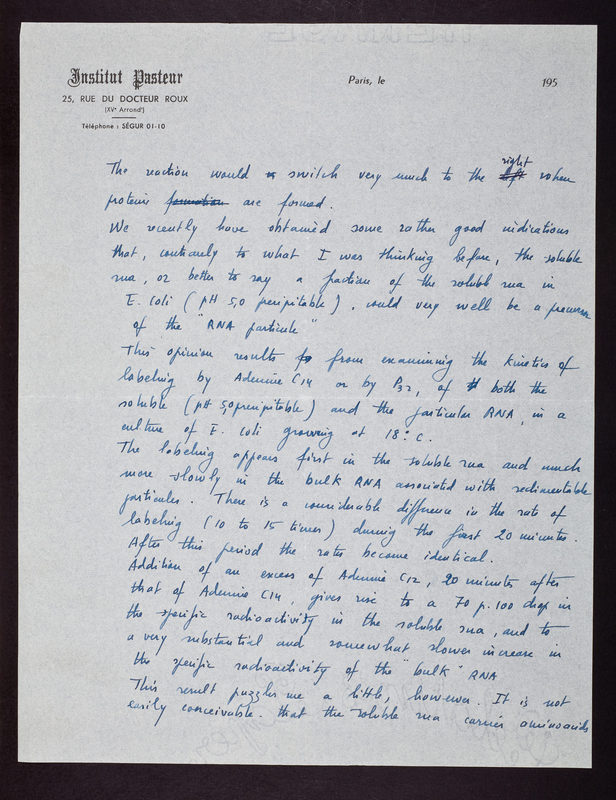 Institut Pasteur
25, RUE DU DOCTEUR ROUX
(XVe Arrondt)
Téléphone : SÉGUR 01-10
Paris, le 195
The reaction would switch very much to the right when
proteins formation are formed.
We recently have obtained some rather good indications
that, contrarely to what I was thinking before, the soluble
rna, or better to say a fraction of the soluble rna in
E. Coli (pH 5,0 precipitable), could very well be a precursor
of the "RNA particule"
This opinion results from examining the kinetics of
labeling by Adenine C14 or by P32, of both the
soluble (pH 5,0 precipitable) and the particular RNA, in a
culture of E. coli growing at 18° C.
The labeling appears first in the soluble rna and much
more slowly in the bulk RNA associated with sedimentable
particules. There is a considerable difference in the rate of
labeling (10 to 15 times) during the first 20 minutes.
After this period the rates become identical.
Addition of an excess of Adenine C12, 20 minutes after
that of Adenine C14, gives rise to a 70 p. 100 drop in
the specific radioactivity in the soluble rna, and to
a very substantial and somewhat slower increase in
the specific radioactivity of the "bulk" RNA
This result puzzles me a little, however. It is not
easily conceivable that the soluble rna carries aminoacids